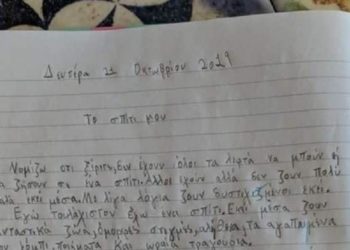 Δευτέρα 21 Οκτωβρίου 2019
Το σπίτι μου
Νομίζω οτι ξέρετε, δεν έχουν όλοι τα λεφτά να μπουν ή
να ζήσουν σε ένα σπίτι. Άλλοι έχουν αλλά δεν ζουν πολύ
καλά εκεί μέσα. Με λίγα λόγια ζουν δυστυχισμένοι εκεί.
Εγώ τουλάχιστον έχω ένα σπίτι. Εκεί μέσα ζουν
φανταστικά ζώα, όμορφες στιγμές, αλήθεια, τα αγαπημένα
ποιήματα και ωραία τραγούδια.